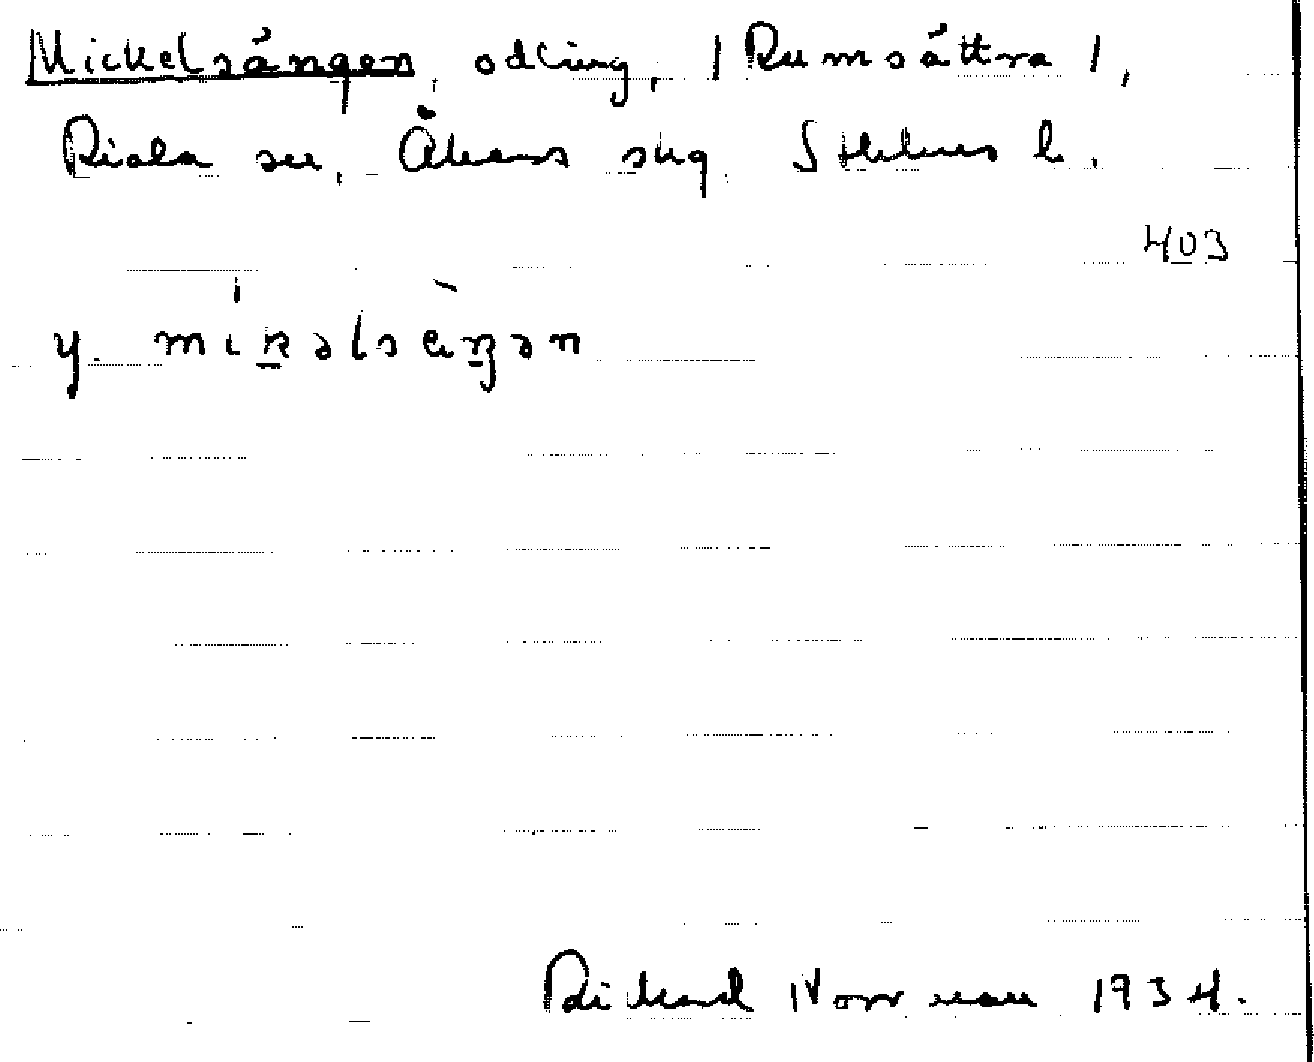 Mickelsängen, odling, /Rumsättra/,
Riala sn, Åkers skg Sthlms l.
403
y. mikəlsäŋən
Rikard Norrman 1934.